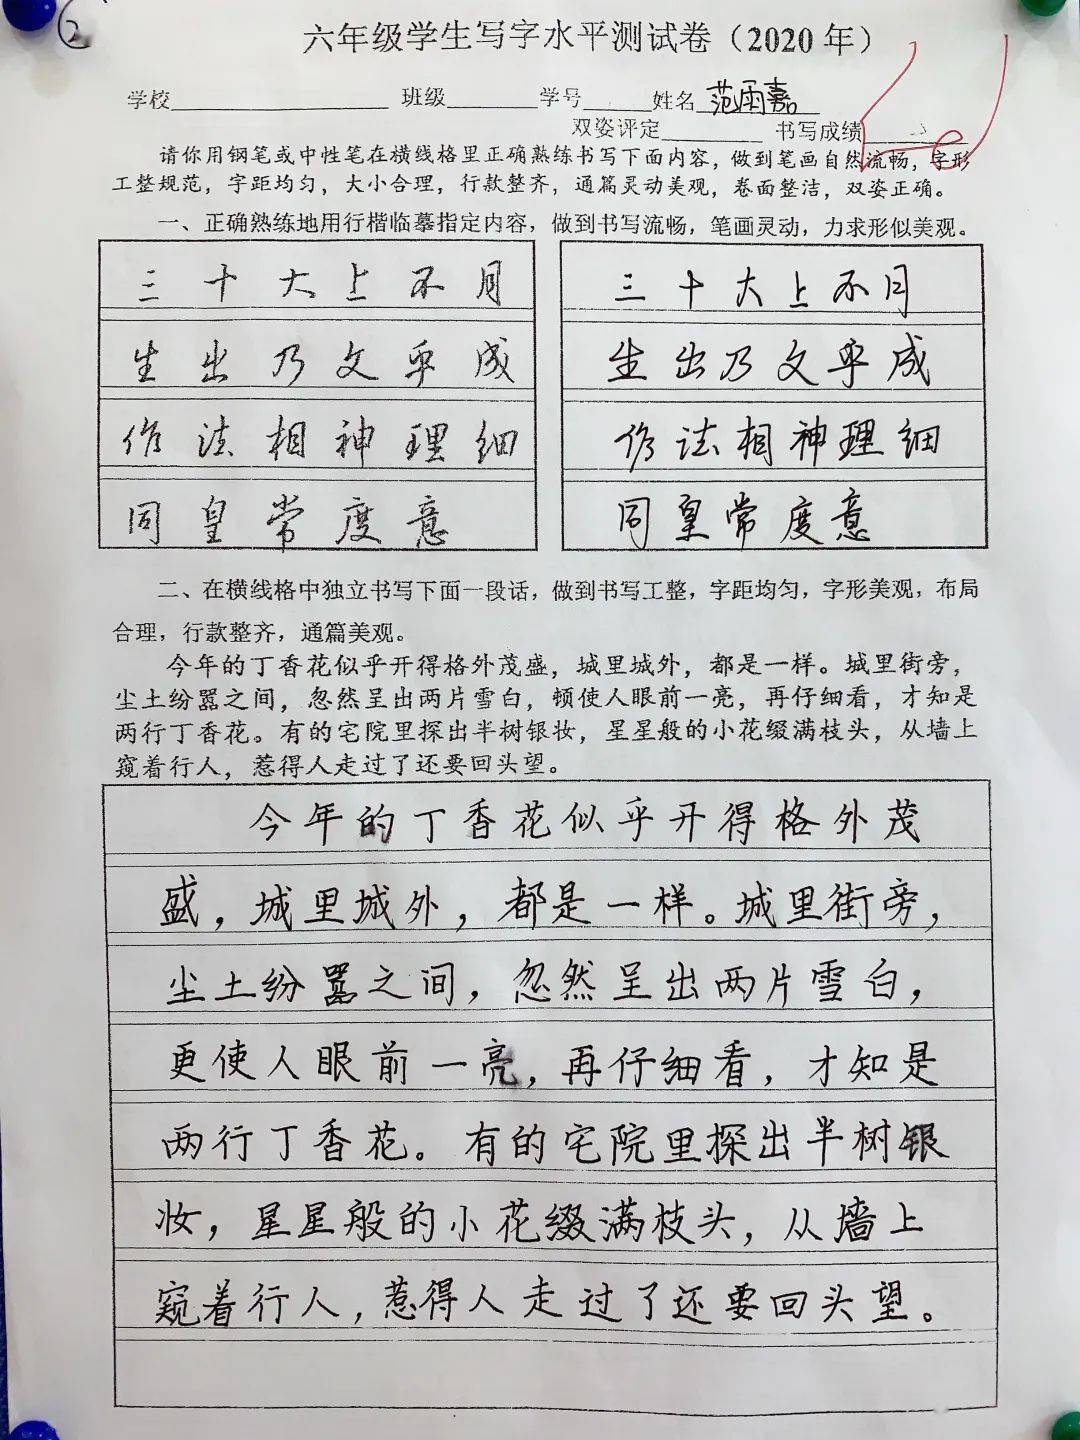 ②
六年级学生写字水平测试卷（2020 年）
学校 班级 学号 姓名 范雨嘉
双姿评定 书写成绩
请你用钢笔或中性笔在横线格里正确熟练书写下面内容，做到笔画自然流畅，字形
工整规范，字距均匀，大小合理，行款整齐，通篇灵动美观，卷面整洁，双姿正确。
一、正确熟练地用行楷临摹指定内容，做到书写流畅，笔画灵动，力求形似美观。
三十大上不月
生出乃文平成
作法相神理细
同皇常度意
三十大上不月
生出乃文平成
作法相神理细
同皇常度意
二、在横线格中独立书写下面一段话，做到书写工整，字距均匀，字形美观，布局
合理，行款整齐，通篇美观。
今年的丁香花似乎开得格外茂盛，城里城外，都是一样。城里街旁，
尘土纷嚣之间，忽然呈出两片雪白，顿使人眼前一亮，再仔细看，才知是
两行丁香花。有的宅院里探出半树银妆，星星般的小花缀满枝头，从墙上
窥着行人，惹得人走过了还要回头望。
今年的丁香花似乎开得格外茂
盛，城里城外，都是一样。城里街旁，
尘土纷嚣之间，忽然呈出两片雪白，
更使人眼前一亮，再仔细看，才知是
两行丁香花。有的宅院里探出半树银
妆，星星般的小花缀满枝头，从墙上
窥着行人，惹得人走过了还要回头望。